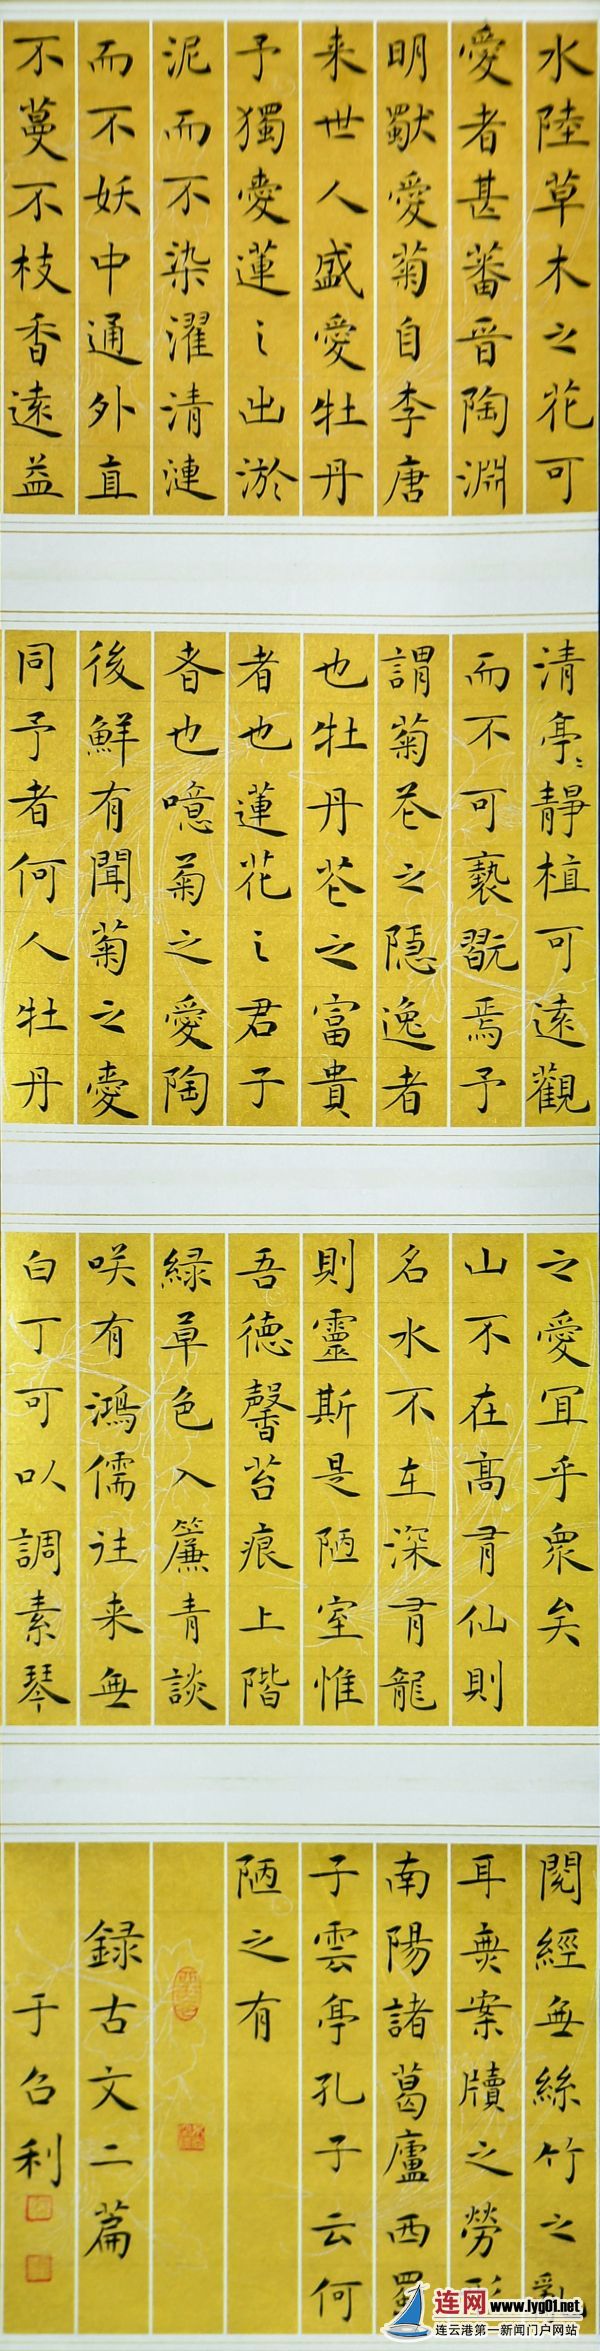 水陸草木之花可
愛者甚蕃晋陶淵
明獨愛菊自李唐
来世人盛愛牡丹
予獨愛蓮之出淤
泥而不染濯清漣
而不妖中通外直
不蔓不枝香遠益
清亭〻靜植可遠觀
而不可褻翫焉予
謂菊花之隱逸者
也牡丹花之富貴
者也蓮花之君子
者也噫菊之愛陶
後鮮有聞菊之愛
同予者何人牡丹
之愛宜乎衆矣
山不在高有仙則
名水不在深有龍
則靈斯是陋室惟
吾德馨苔痕上階
緑草色入簾青談
咲有鴻儒往来無
白丁可以調素琴
閱經無絲竹之亂
耳無案牘之勞形
南陽諸葛廬西蜀
子雲亭孔子云何
陋之有
録古文二篇
于召利
连网 www.lyg01.net
连云港第一新闻门户网站